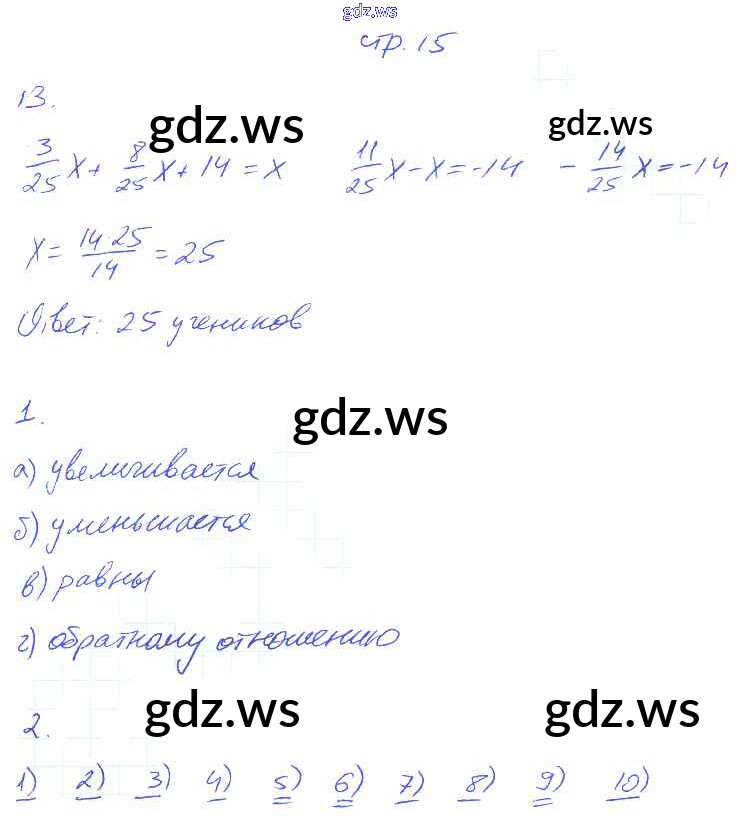 gdz.ws
стр. 15
13.
gdz.ws gdz.ws
3/25 x + 8/25 x + 14 = x 11/25 x - x = -14 - 14/25 x = -14
x = 14·25/14 = 25
Ответ: 25 учеников
1.
gdz.ws
а) увеличивается
б) уменьшается
в) равны
г) обратному отношению
gdz.ws gdz.ws
2.
1) 2) 3) 4) 5) 6) 7) 8) 9) 10)